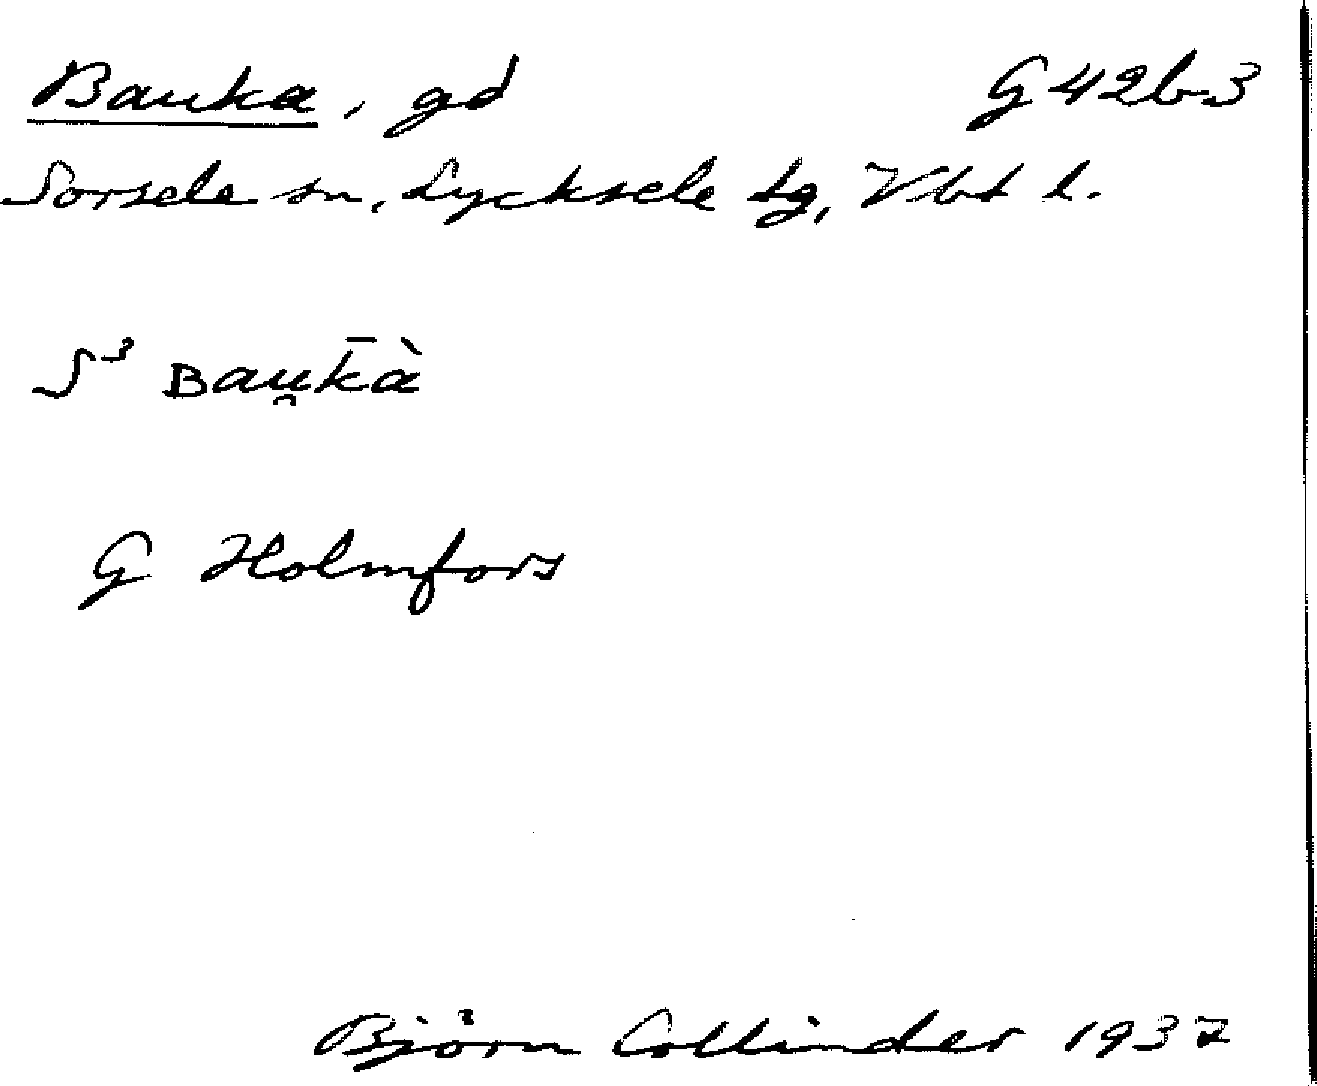 Bauka, gd G42b3
Sorsele sn, Lycksele tg, Vbt l.
S³ Bau̯k̄à
G Holmfors
Björn Collinder 1937